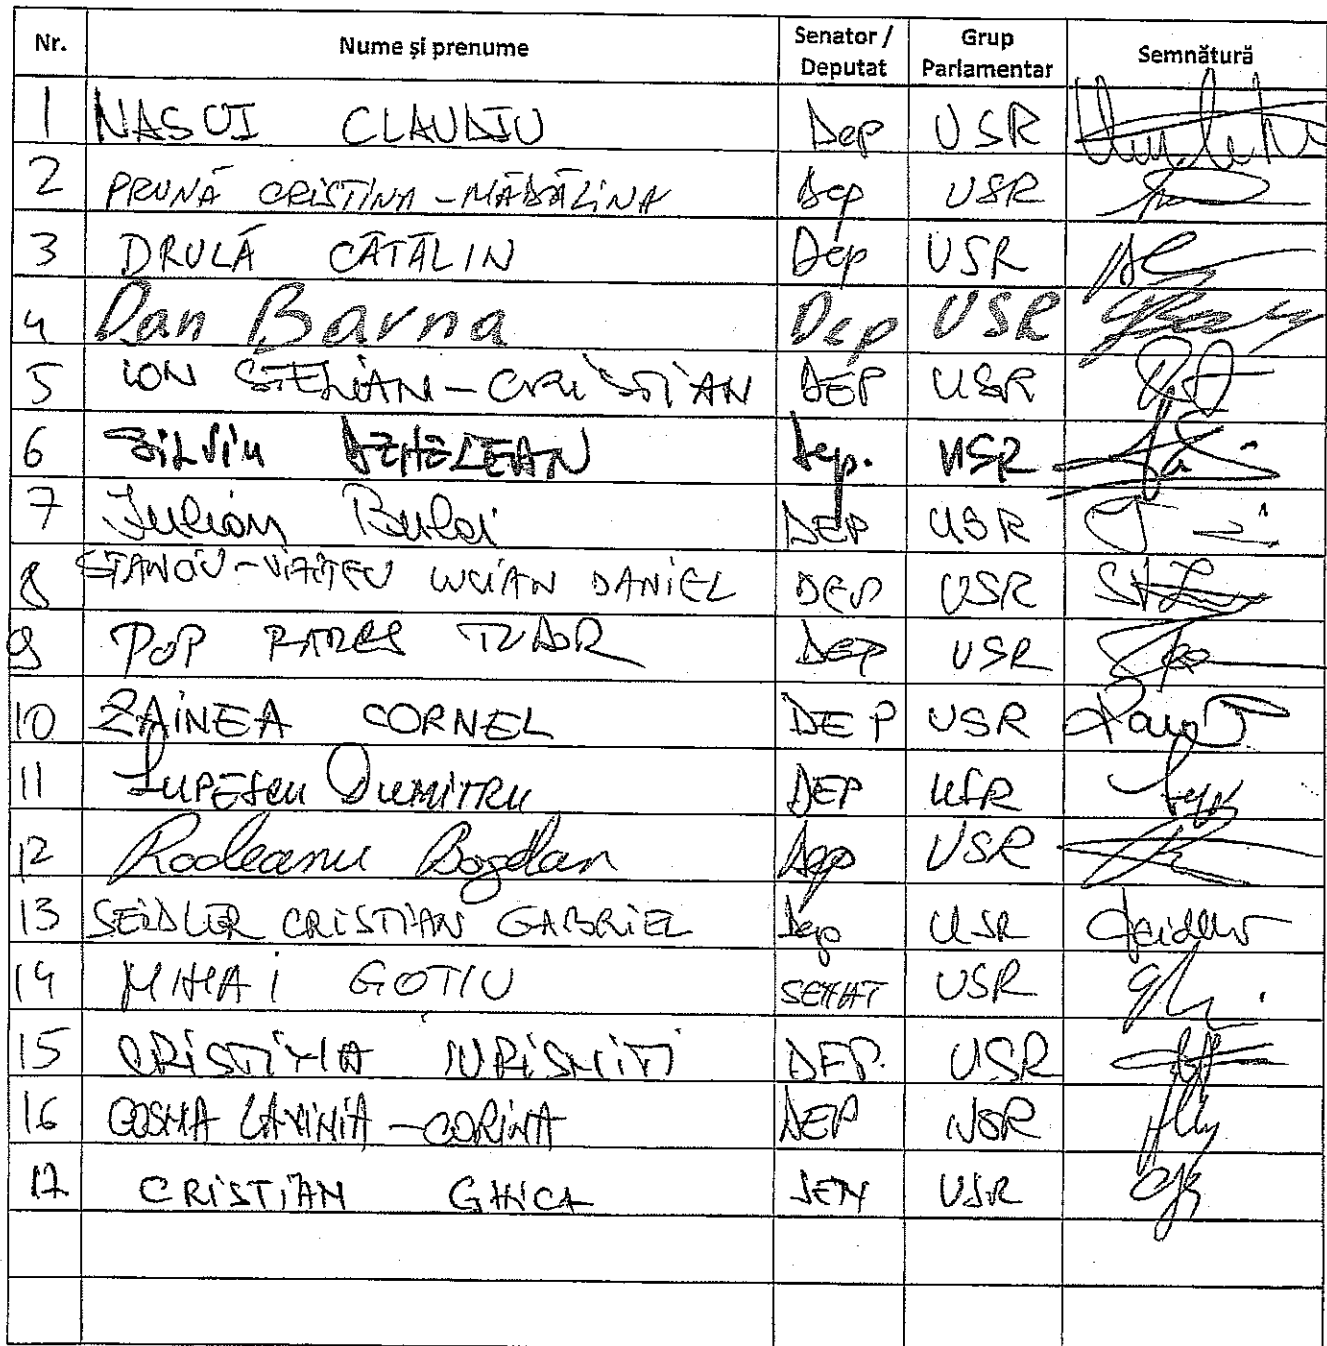 Nr. Nume și prenume Senator / Deputat Grup Parlamentar Semnătură
1 NASUI CLAUDIU Dep USR
2 PRUNĂ CRISTINA-MĂDĂLINA Dep USR
3 DRULĂ CĂTĂLIN Dep USR
4 Dan Barna Dep USR
5 ION STELIAN-CRISTIAN DEP USR
6 SiLViu DEHELEAN Dep. USR
7 Iulian Bulai DEP USR
8 STANCIU-VIZITEU LUCIAN DANIEL DEP USR
9 POP RARES TUDOR DEP USR
10 ZAINEA CORNEL DEP USR
11 LUPESCU DUMITRU DEP USR
12 Rodeanu Bogdan Dep USR
13 SEIDLER CRISTIAN GABRIEL Dep USR Seidler
14 MIHAI GOTIU SENAT USR
15 CRISTINA IURISNITI DEP. USR
16 COSMA LAVINIA-CORINA DEP USR
17. CRISTIAN GHICA SEN USR